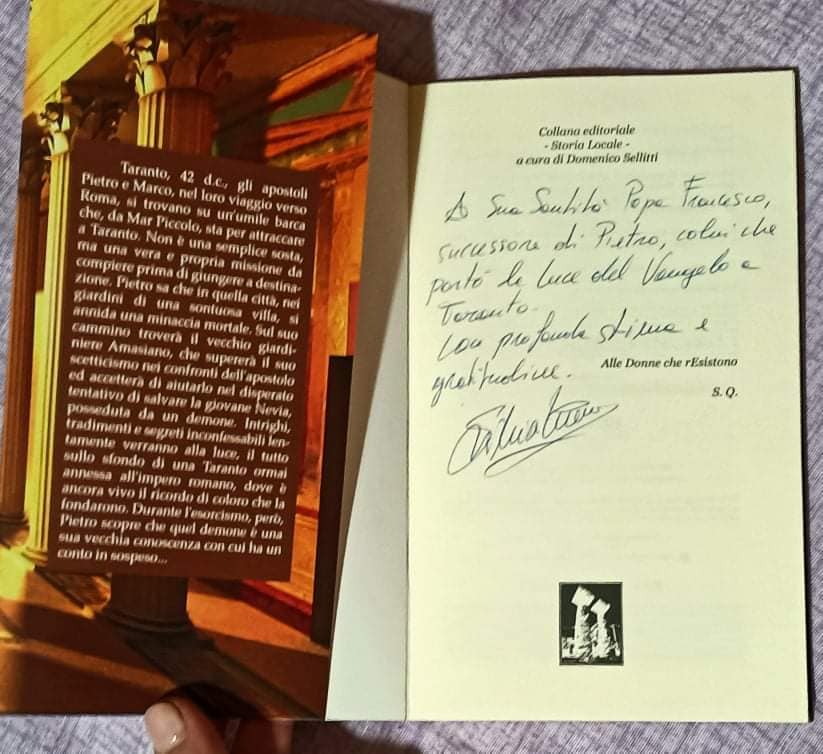 Taranto, 42 d.c., gli apostoli
Pietro e Marco, nel loro viaggio verso
Roma, si trovano su un'umile barca
che, da Mar Piccolo, sta per attraccare
a Taranto. Non è una semplice sosta,
ma una vera e propria missione da
compiere prima di giungere a destina-
zione. Pietro sa che in quella città, nei
giardini di una sontuosa villa, si
annida una minaccia mortale. Sul suo
cammino troverà il vecchio giardi-
niere Amasiano, che supererà il suo
scetticismo nei confronti dell'apostolo
ed accetterà di aiutarlo nel disperato
tentativo di salvare la giovane Nevia,
posseduta da un demone. Intrighi,
tradimenti e segreti inconfessabili len-
tamente verranno alla luce, il tutto
sullo sfondo di una Taranto ormai
annessa all'impero romano, dove è
ancora vivo il ricordo di coloro che la
fondarono. Durante l'esorcismo, però,
Pietro scopre che quel demone è una
sua vecchia conoscenza con cui ha un
conto in sospeso...
Collana editoriale
- Storia Locale -
a cura di Domenico Sellitti
A Sua Santità Papa Francesco,
successore di Pietro, colui che
portò la luce del Vangelo a
Taranto.
Con profonda stima e
gratitudine.
Alle Donne che rEsistono
S. Q.